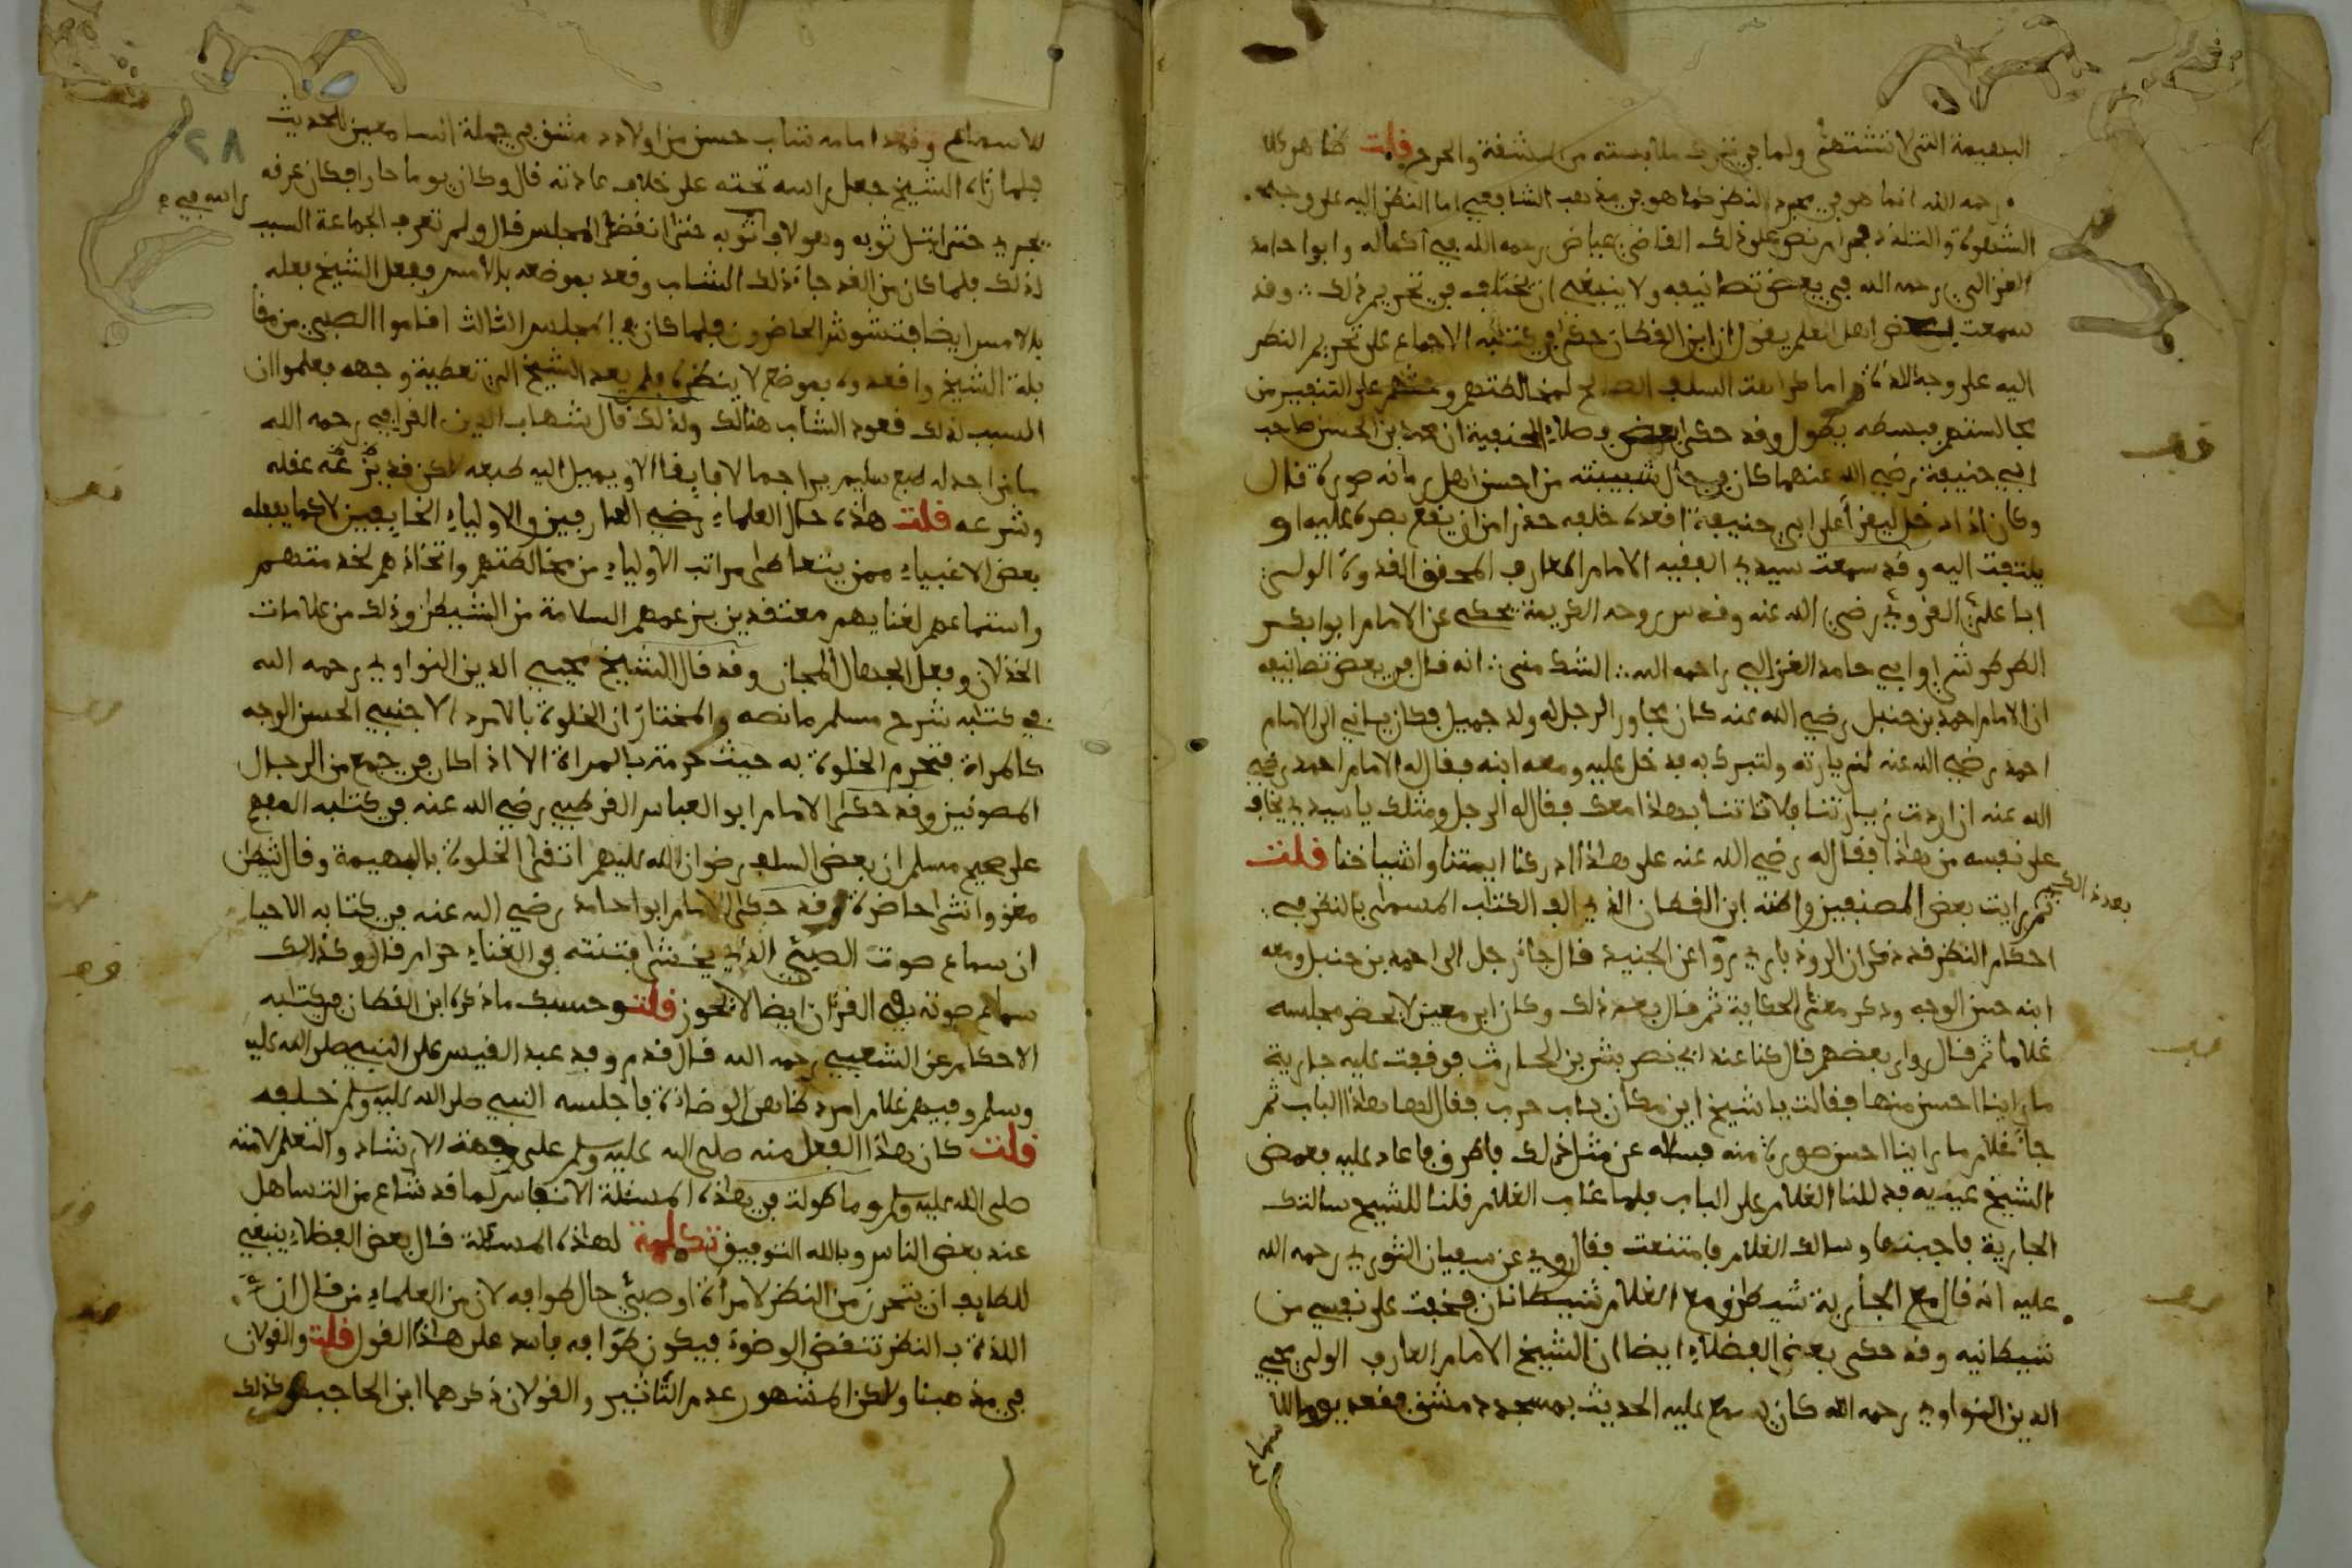 البهيمة التي لا تشتهى ولما في تحرك ملابسته من المشقة والحرج قلت ظاهر كلا
رحمه الله انما هو في مجرد النظر كما هو في مذهب الشافعي اما النظر اليه على وجه
الشهوة والتلذذ فحرام نص على ذلك القاضي عياض رحمه الله في اكماله وابوا حامد
الغزالي رحمه الله في بعض تصانيفه ولا ينبغي ان يختلف في تحريم ذلك وقد
سمعت بعض اهل العلم يقول ان ابن القطان حكى في كتابه الاجماع على تحريم النظر
اليه على وجه اللذة واما كراهة السلف الصالح لمخالطتهم وحثهم على التنفير من
مجالستهم فبسطه يطول وقد حكى بعض فضلاء الحنفية ان محمد بن الحسن صاحب
ابي حنيفة رضي الله عنهما كان في حال شبيبته من احسن اهل زمانه صورة قال
وكان اذا دخل ليقرأ على ابي حنيفة اقعده خلفه حذرا من ان يقع بصره عليه او
يلتفت اليه وقد سمعت سيدي الفقيه الامام العارف المحقق القدوة الولي
ابا علي القروي رضي الله عنه وقدس روحه الكريمة يحكي عن الامام ابو ابكر
الطرطوشي او ابي حامد الغزالي رحمه الله الشك مني انه قال في بعض تصانيفه
ان الامام احمد بن حنبل رضي الله عنه كان يجاور الرجل له ولد جميل فكان ياتي الى الامام
احمد رضي الله عنه لزيارته ولتبرك به فدخل عليه ومعه ابنه فقال له الامام احمد رضي
الله عنه ان اردت زيارتنا فلا تاتنا بهذا معك فقال له الرجل ومثلك يا سيدي يخاف
على نفسه من هذا فقال له رضي الله عنه على هذا ادركنا ايمتنا واشياخنا قلت
ثم رايت بعض المصنفين واظنه ابن القطان الذي الف الكتاب المسمى بالنظر في
احكام النظر قد ذكر ان الروذباري روا عن الجنيد قال جاء رجل الى احمد بن حنبل ومعه
ابنه حسن الوجه وذكر معنى الحكاية ثم قال بعد ذلك وكان ابن معين لا يحضر مجلسه
غلاما ثم قال روى بعضهم قال كنا عند ابي نصر بشر بن الحارث فوقفت عليه جارية
ما راينا احسن منها فقالت يا شيخ اين مكان باب حرب فقال لها هذا الباب ثم
جاء غلام ما راينا احسن صورة منه فساله عن مثل ذلك فاطرق فاعاد عليه فغمض
الشيخ عينيه فدللنا الغلام على الباب فلما غاب الغلام قلنا للشيخ سالتك
الجارية فاجبتها وسالك الغلام فامتنعت فقال روي عن سفيان الثوري رحمه الله
عليه انه قال مع الجارية شيطان ومع الغلام شيطانان فخفت على نفسي من
شيطانيه وقد حكى بعض الفضلاء ايضا ان الشيخ الامام العارف الولي محيي
الدين النواوي رحمه الله كان يسمع عليه الحديث بمسجد دمشق فقعد يوما للا
سماع
للاسماع وقعد امامه شاب حسن من اولاد دمشق في جملة السامعين للحديث
فلما رءاه الشيخ جعل راسه تحته على خلاف عادته قال وكان يوما حارا فكان عرقه
راسه في
يجري حتى ابتل ثوبه وهو لاف ثوبه حتى انقضى المجلس قال ولم تعرف الجماعة السبب
لذلك فلما كان من الغد جاء ذلك الشاب وقعد بموضعه بالامس ففعل الشيخ بفعله
بالامس ايضا فتشوش الحاضرون فلما كان في المجلس الثالث اقاموا الصبي من مقا
بلة الشيخ واقعدوه بموضع لا ينظره فلم يعد الشيخ الى تغطية وجهه فعلموا ان
السبب لذلك قعود الشاب هنالك ولذلك قال شهاب الدين القرافي رحمه الله
ما من احد له طبع سليم يرا جمالا فايقا الا ويميل اليه طبعه لكن قد يزعه عقله
وشرعه قلت هذه حال العلماء رضي العارفين والاولياء الخايفين لا كما يفعله
بعض الاغبياء ممن يتعاطى مراتب الاولياء من مخالطتهم واتخاذهم لخدمتهم
واستماعهم لغنايهم معتقدين بزعمهم السلامة من الشيطان وذلك من علامات
الخذلان وفعل الجهال المجان وقد قال الشيخ محيي الدين النواوي رحمه الله
في كتابه شرح مسلم ما نصه والمختار ان الخلوة بالامرد الاجنبي الحسن الوجه
كالمراة فتحرم الخلوة به حيث حرمت بالمراة الا اذا كان في جمع من الرجال
المصونين وقد حكى الامام ابو العباس القرطبي رضي الله عنه في كتابه المفهم
على صحيح مسلم ان بعض السلف رضوان الله عليهم اتقى الخلوة بالبهيمة وقال شيطان
مغو وانثى حاضرة وقد حكى الامام ابوا حامد رضي الله عنه في كتابه الاحيا
ان سماع صوت الصبي الذي يخشى فتنته في الغناء حرام قال وكذالك
سماع صوته في القرءان ايضا لا يجوز قلت وحسبك ما ذكره ابن القطان في كتابه
الاحكام عن الشعبي رحمه الله قال قدم وفد عبد القيس على النبي صلى الله عليه
وسلم وفيهم غلام امرد ظاهر الوضاءة فاجلسه النبي صلى الله عليه وسلم خلفه
قلت كان هذا الفعل منه صلى الله عليه وسلم على جهة الارشاد والتعلم لامته
صلى الله عليه وسلم وما طولت في هذه المسئلة الانفاس لما قد شاع من التساهل
عند بعض الناس وبالله التوفيق تكملة لهذه المسئلة قال بعض الفضلاء ينبغي
للطايف ان يتحرز من النظر لامرأة او صبي حال طوافه لان من العلماء من قال ان
اللذة بالنظر تنقض الوضوء فيكون طوافه فاسد على هذا القول قلت والقولان
في مذهبنا ولكن المشهور عدم التاثير والقولان ذكرهما ابن الحاجب وكذلك